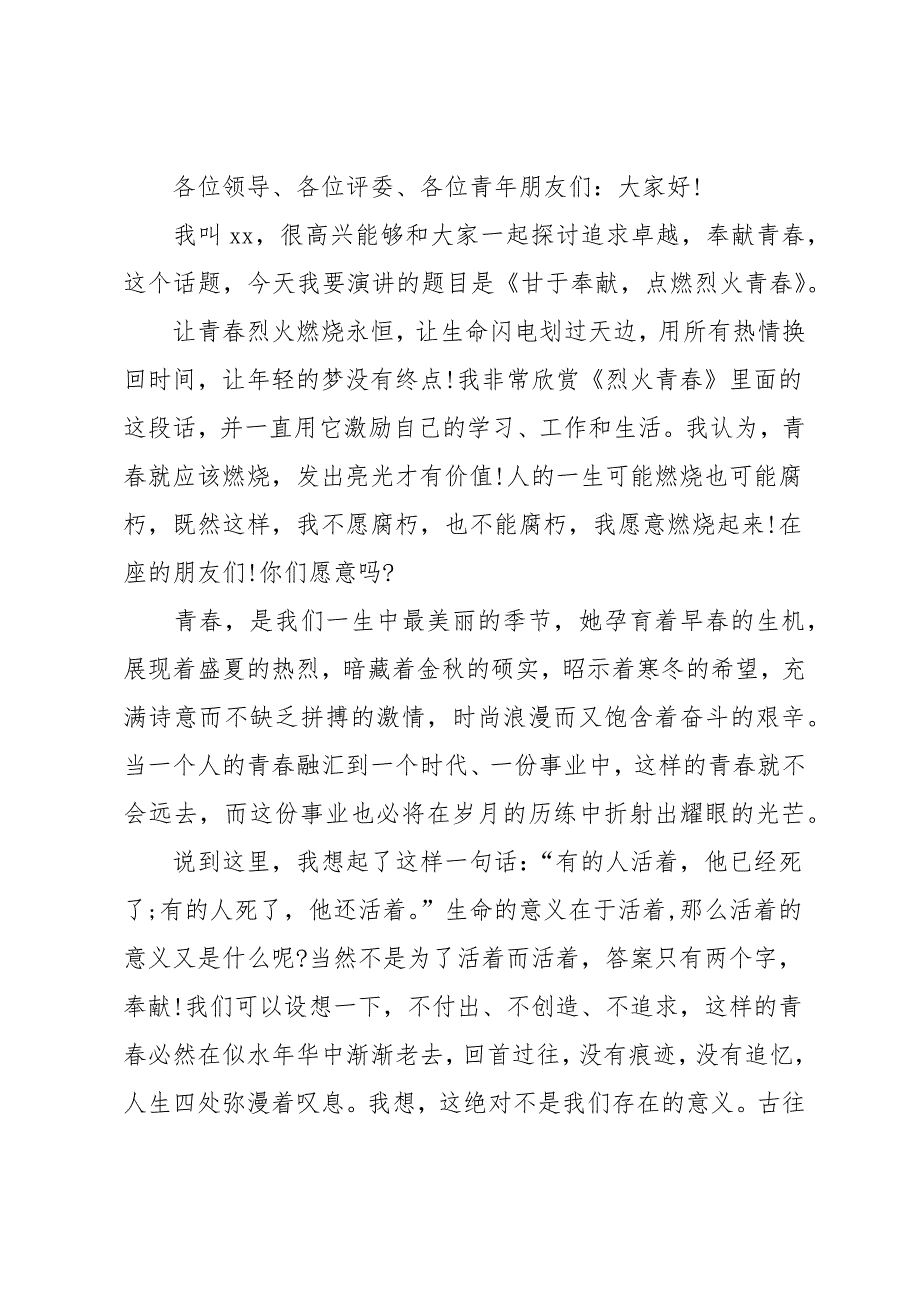 各位领导、各位评委、各位青年朋友们：大家好!
我叫 xx，很高兴能够和大家一起探讨追求卓越，奉献青春，
这个话题，今天我要演讲的题目是《甘于奉献，点燃烈火青春》。
让青春烈火燃烧永恒，让生命闪电划过天边，用所有热情换
回时间，让年轻的梦没有终点!我非常欣赏《烈火青春》里面的
这段话，并一直用它激励自己的学习、工作和生活。我认为，青
春就应该燃烧，发出亮光才有价值!人的一生可能燃烧也可能腐
朽，既然这样，我不愿腐朽，也不能腐朽，我愿意燃烧起来!在
座的朋友们!你们愿意吗?
青春，是我们一生中最美丽的季节，她孕育着早春的生机，
展现着盛夏的热烈，暗藏着金秋的硕实，昭示着寒冬的希望，充
满诗意而不缺乏拼搏的激情，时尚浪漫而又饱含着奋斗的艰辛。
当一个人的青春融汇到一个时代、一份事业中，这样的青春就不
会远去，而这份事业也必将在岁月的历练中折射出耀眼的光芒。
说到这里，我想起了这样一句话：“有的人活着，他已经死
了;有的人死了，他还活着。”生命的意义在于活着,那么活着的
意义又是什么呢?当然不是为了活着而活着，答案只有两个字，
奉献!我们可以设想一下，不付出、不创造、不追求，这样的青
春必然在似水年华中渐渐老去，回首过往，没有痕迹，没有追忆，
人生四处弥漫着叹息。我想，这绝对不是我们存在的意义。古往